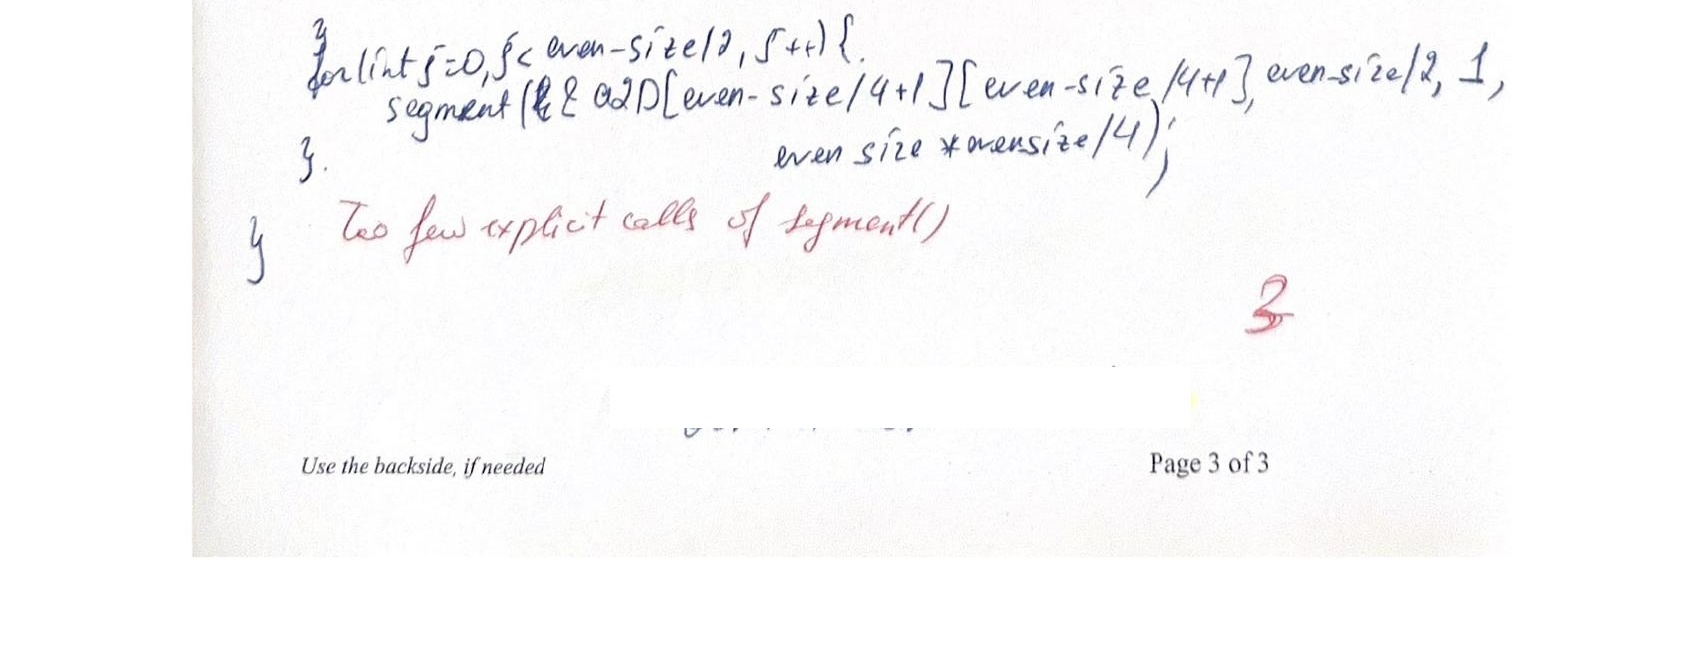 }
for(int j=0, j< even-size/2, j++) {.
segment(& a2D[even-size/4+1][even-size/4+1], even-size/2, 1,
even size * evensize/4);
}.
Too few explicit calls of segment()
}
3
Use the backside, if needed
Page 3 of 3